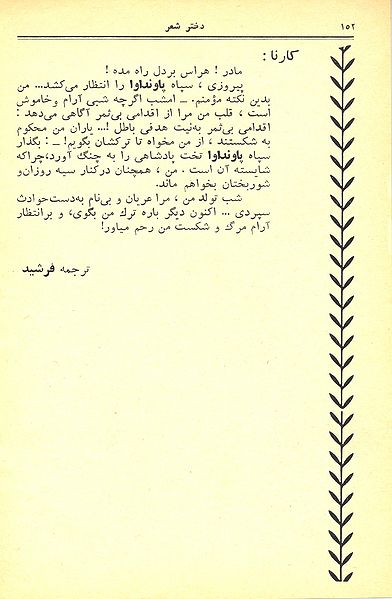 ۱۵۲
دختر شعر
کارنا :
مادر ! هراس بردل راه مده !
پیروزی ، سپاه پاونداوا را انتظار می‌کشد... من
بدین نکته مؤمنم. ـ امشب اگرچه شبی آرام وخاموش
است ، قلب من مرا از اقدامی بی‌ثمر آگاهی می‌دهد :
اقدامی بی‌ثمر به‌نیت هدفی باطل !... یاران من محکوم
به شکستند ، از من مخواه تا ترکشان بگویم! ـ : بگذار
سپاه پاونداوا تخت پادشاهی را به چنگ آورد،چراکه
شایسته آن است . من ، همچنان درکنار سیه روزان‌و
شوربختان بخواهم ماند.
شب تولد من ، مرا عریان و بی‌نام به‌دست‌حوادث
سپردی ... اکنون دیگر باره ترك من بگوی، و برانتظار
آرام مرگ و شکست من رحم میاور!
ترجمه فرشید